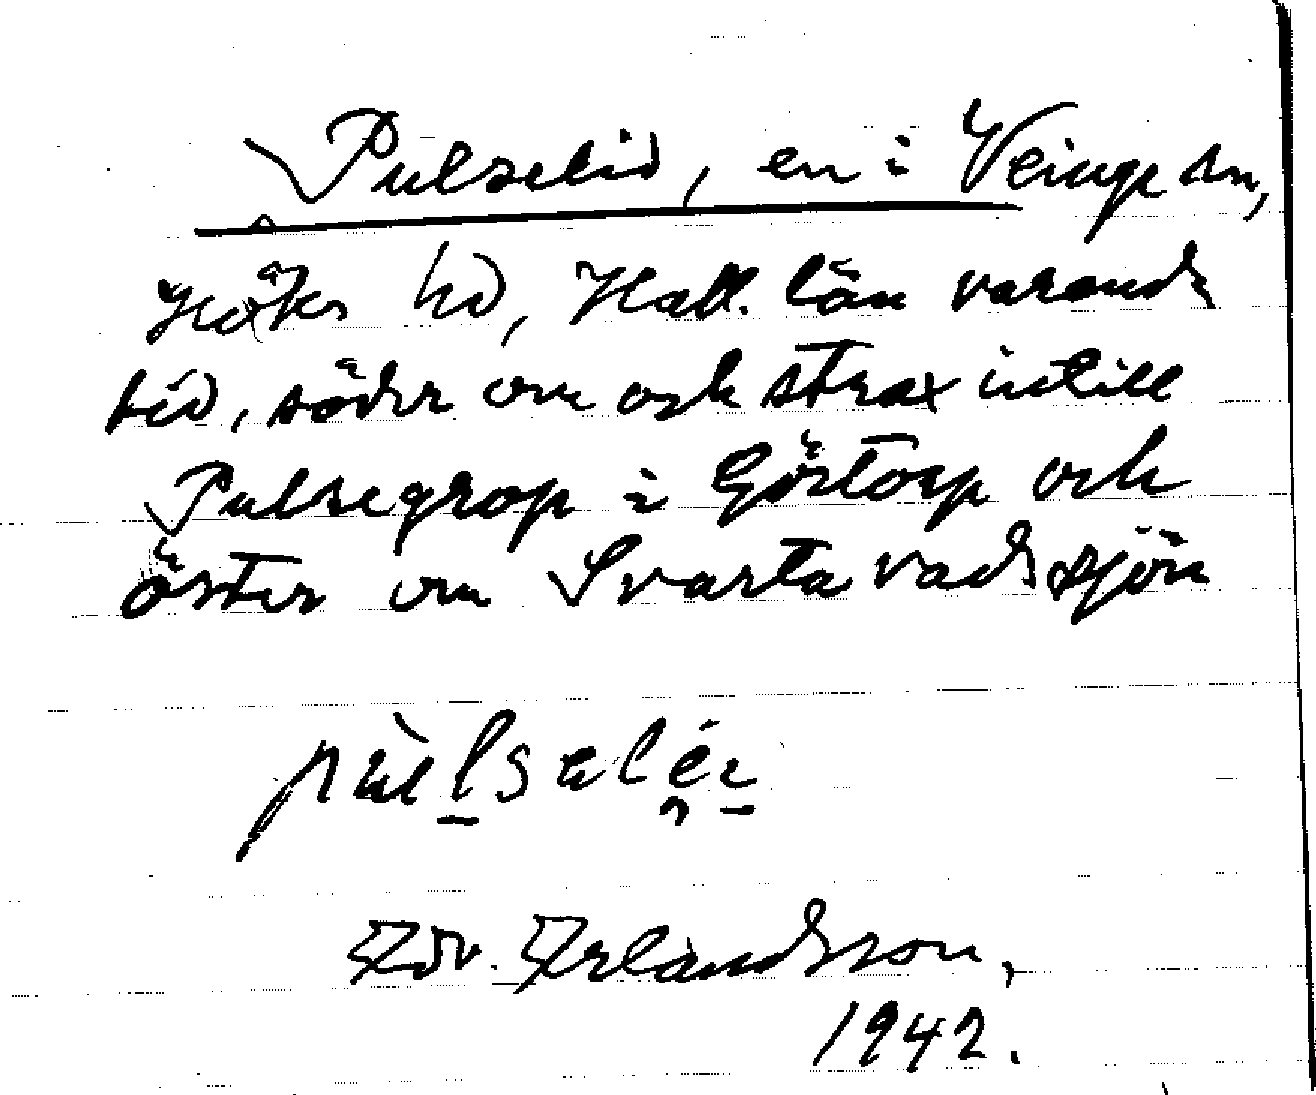 Pulselid, en i Veinge sn,
Höks hd, Hall. län varande
lid, söder om och strax intill
Pulsegrop i Göstorp och
öster om Svarta vadsjön
Edv. Erlandsson,
1942.